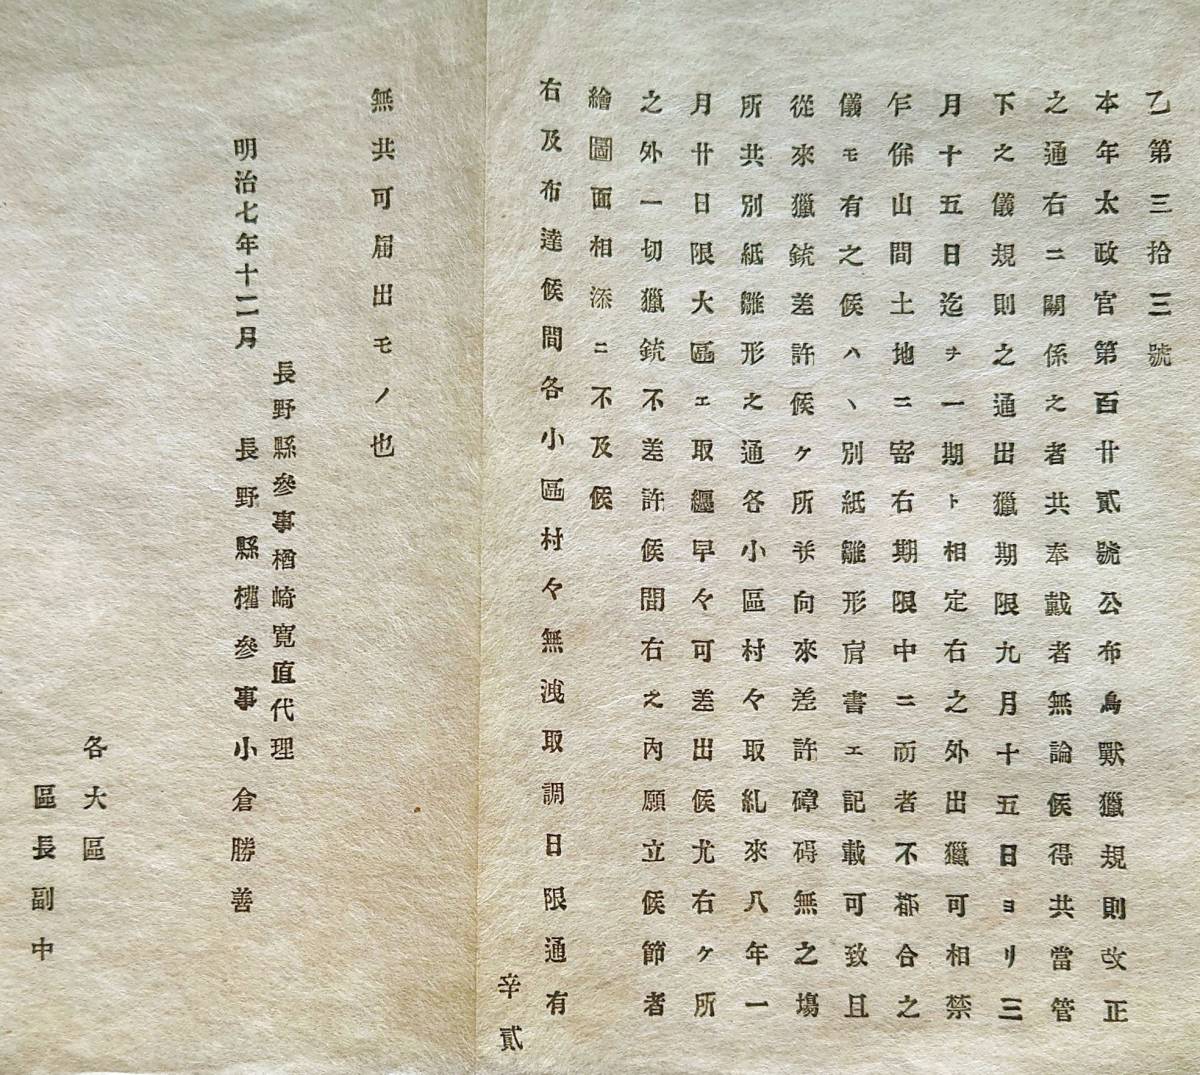 乙第三拾三號
本年太政官第百廿貳號公布鳥獸獵規則改正
之通右ニ關係之者共奉戴者無論候得共當管
下之儀規則之通出獵期限九月十五日ヨリ三
月十五日迄ヲ一期ト相定右之外出獵可相禁
乍併山間土地ニ寄右期限中ニ而者不都合之
儀モ有之候ハヽ別紙雛形肩書エ記載可致且
從來獵銃差許候ケ所并向來差許礙碍無之塲
所共別紙雛形之通各小區村々取糺來八年一
月廿日限大區エ取纒早々可差出候尤右ケ所
之外一切獵銃不差許候間右之內願立候節者
繪圖面相添ニ不及候
右及布達候間各小區村々無洩取調日限通有
辛貳
無共可届出モノ也
明治七年十二月
長野縣參事楢崎寛直代理
長野縣權參事小倉勝善
各大區
區長副中